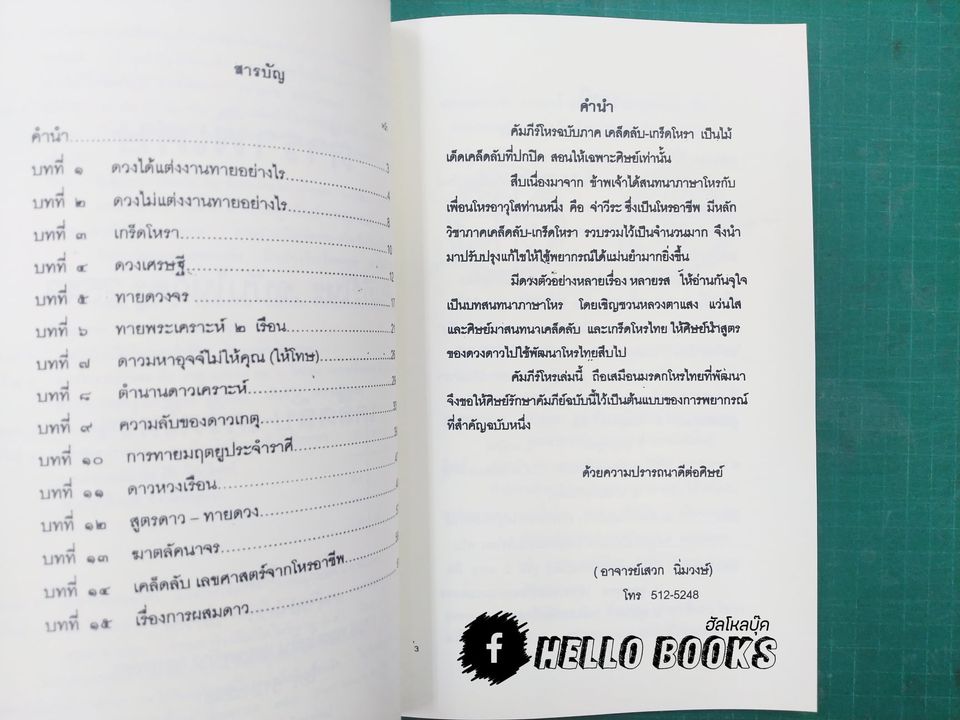 สารบัญ
คำนำ 3
บทที่ ๑ ดวงได้แต่งงานทายอย่างไร 4
บทที่ ๒ ดวงไม่แต่งงานทายอย่างไร 8
บทที่ ๓ เกร็ดโหรา 10
บทที่ ๔ ดวงเศรษฐี 12
บทที่ ๕ ทายดวงจร 17
บทที่ ๖ ทายพระเคราะห์ ๒ เรือน 21
บทที่ ๗ ดาวมหาอุจจ์ไม่ให้คุณ (ให้โทษ)
บทที่ ๘ ตำนานดาวเคราะห์
บทที่ ๙ ความลับของดาวเกตุ
บทที่ ๑๐ การทายมฤตยูประจำราศี
บทที่ ๑๑ ดาวหวงเรือน
บทที่ ๑๒ สูตรดาว – ทายดวง
บทที่ ๑๓ ฆาตลัคนาจร
บทที่ ๑๔ เคล็ดลับ เลขศาสตร์จากโหรอาชีพ
บทที่ ๑๕ เรื่องการผสมดาว
คำนำ
คัมภีร์โหรฉบับภาค เคล็ดลับ-เกร็ดโหรา เป็นไม้
เด็ดเคล็ดลับที่ปกปิด สอนให้เฉพาะศิษย์เท่านั้น
สืบเนื่องมาจาก ข้าพเจ้าได้สนทนาภาษาโหรกับ
เพื่อนโหรอาวุโสท่านหนึ่ง คือ จ่าวีระ ซึ่งเป็นโหรอาชีพ มีหลัก
วิชาภาคเคล็ดลับ-เกร็ดโหรา รวบรวมไว้เป็นจำนวนมาก จึงนำ
มาปรับปรุงแก้ไขให้ใช้พยากรณ์ได้แม่นยำมากยิ่งขึ้น
มีดวงตัวอย่างหลายเรื่อง หลายรส ให้อ่านกันจุใจ
เป็นบทสนทนาภาษาโหร โดยเชิญชวนหลวงตาแสง แว่นใส
และศิษย์มาสนทนาเคล็ดลับ และเกร็ดโหรไทย ให้ศิษย์นำสูตร
ของดวงดาวไปใช้พัฒนาโหรไทยสืบไป
คัมภีร์โหรเล่มนี้ ถือเสมือนมรดกโหรไทยที่พัฒนา
จึงขอให้ศิษย์รักษาคัมภีย์ฉบับนี้ไว้เป็นต้นแบบของการพยากรณ์
ที่สำคัญฉบับหนึ่ง
ด้วยความปรารถนาดีต่อศิษย์
(อาจารย์เสวก นิ่มวงษ์)
โทร 512-5248
3
ฮัลโหลบุ๊ค
f HELLO BOOKS